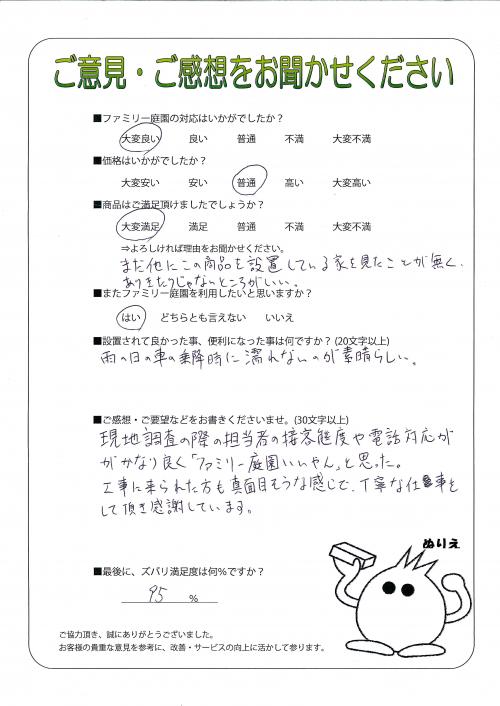 ご意見・ご感想をお聞かせください
■ファミリー庭園の対応はいかがでしたか？
大変良い 良い 普通 不満 大変不満
■価格はいかがでしたか？
大変安い 安い 普通 高い 大変高い
■商品はご満足頂けましたでしょうか？
大変満足 満足 普通 不満 大変不満
⇒よろしければ理由をお聞かせください。
まだ他にこの商品を設置している家を見たことが無く、
ありきたりじゃないところがいい。
■またファミリー庭園を利用したいと思いますか？
はい どちらとも言えない いいえ
■設置されて良かった事、便利になった事は何ですか？ (20文字以上)
雨の日の車の乗降時に濡れないのが素晴らしい。
■ご感想・ご要望などをお書きくださいませ。(30文字以上)
現地調査の際の担当者の接客態度や電話対応が
がかなり良く「ファミリー庭園いいやん」と思った。
工事に来られた方も真面目そうな感じで、丁寧な仕事を
して頂き感謝しています。
ぬりえ
■最後に、ズバリ満足度は何％ですか？
95 ％
ご協力頂き、誠にありがとうございました。
お客様の貴重な意見を参考に、改善・サービスの向上に活かして参ります。